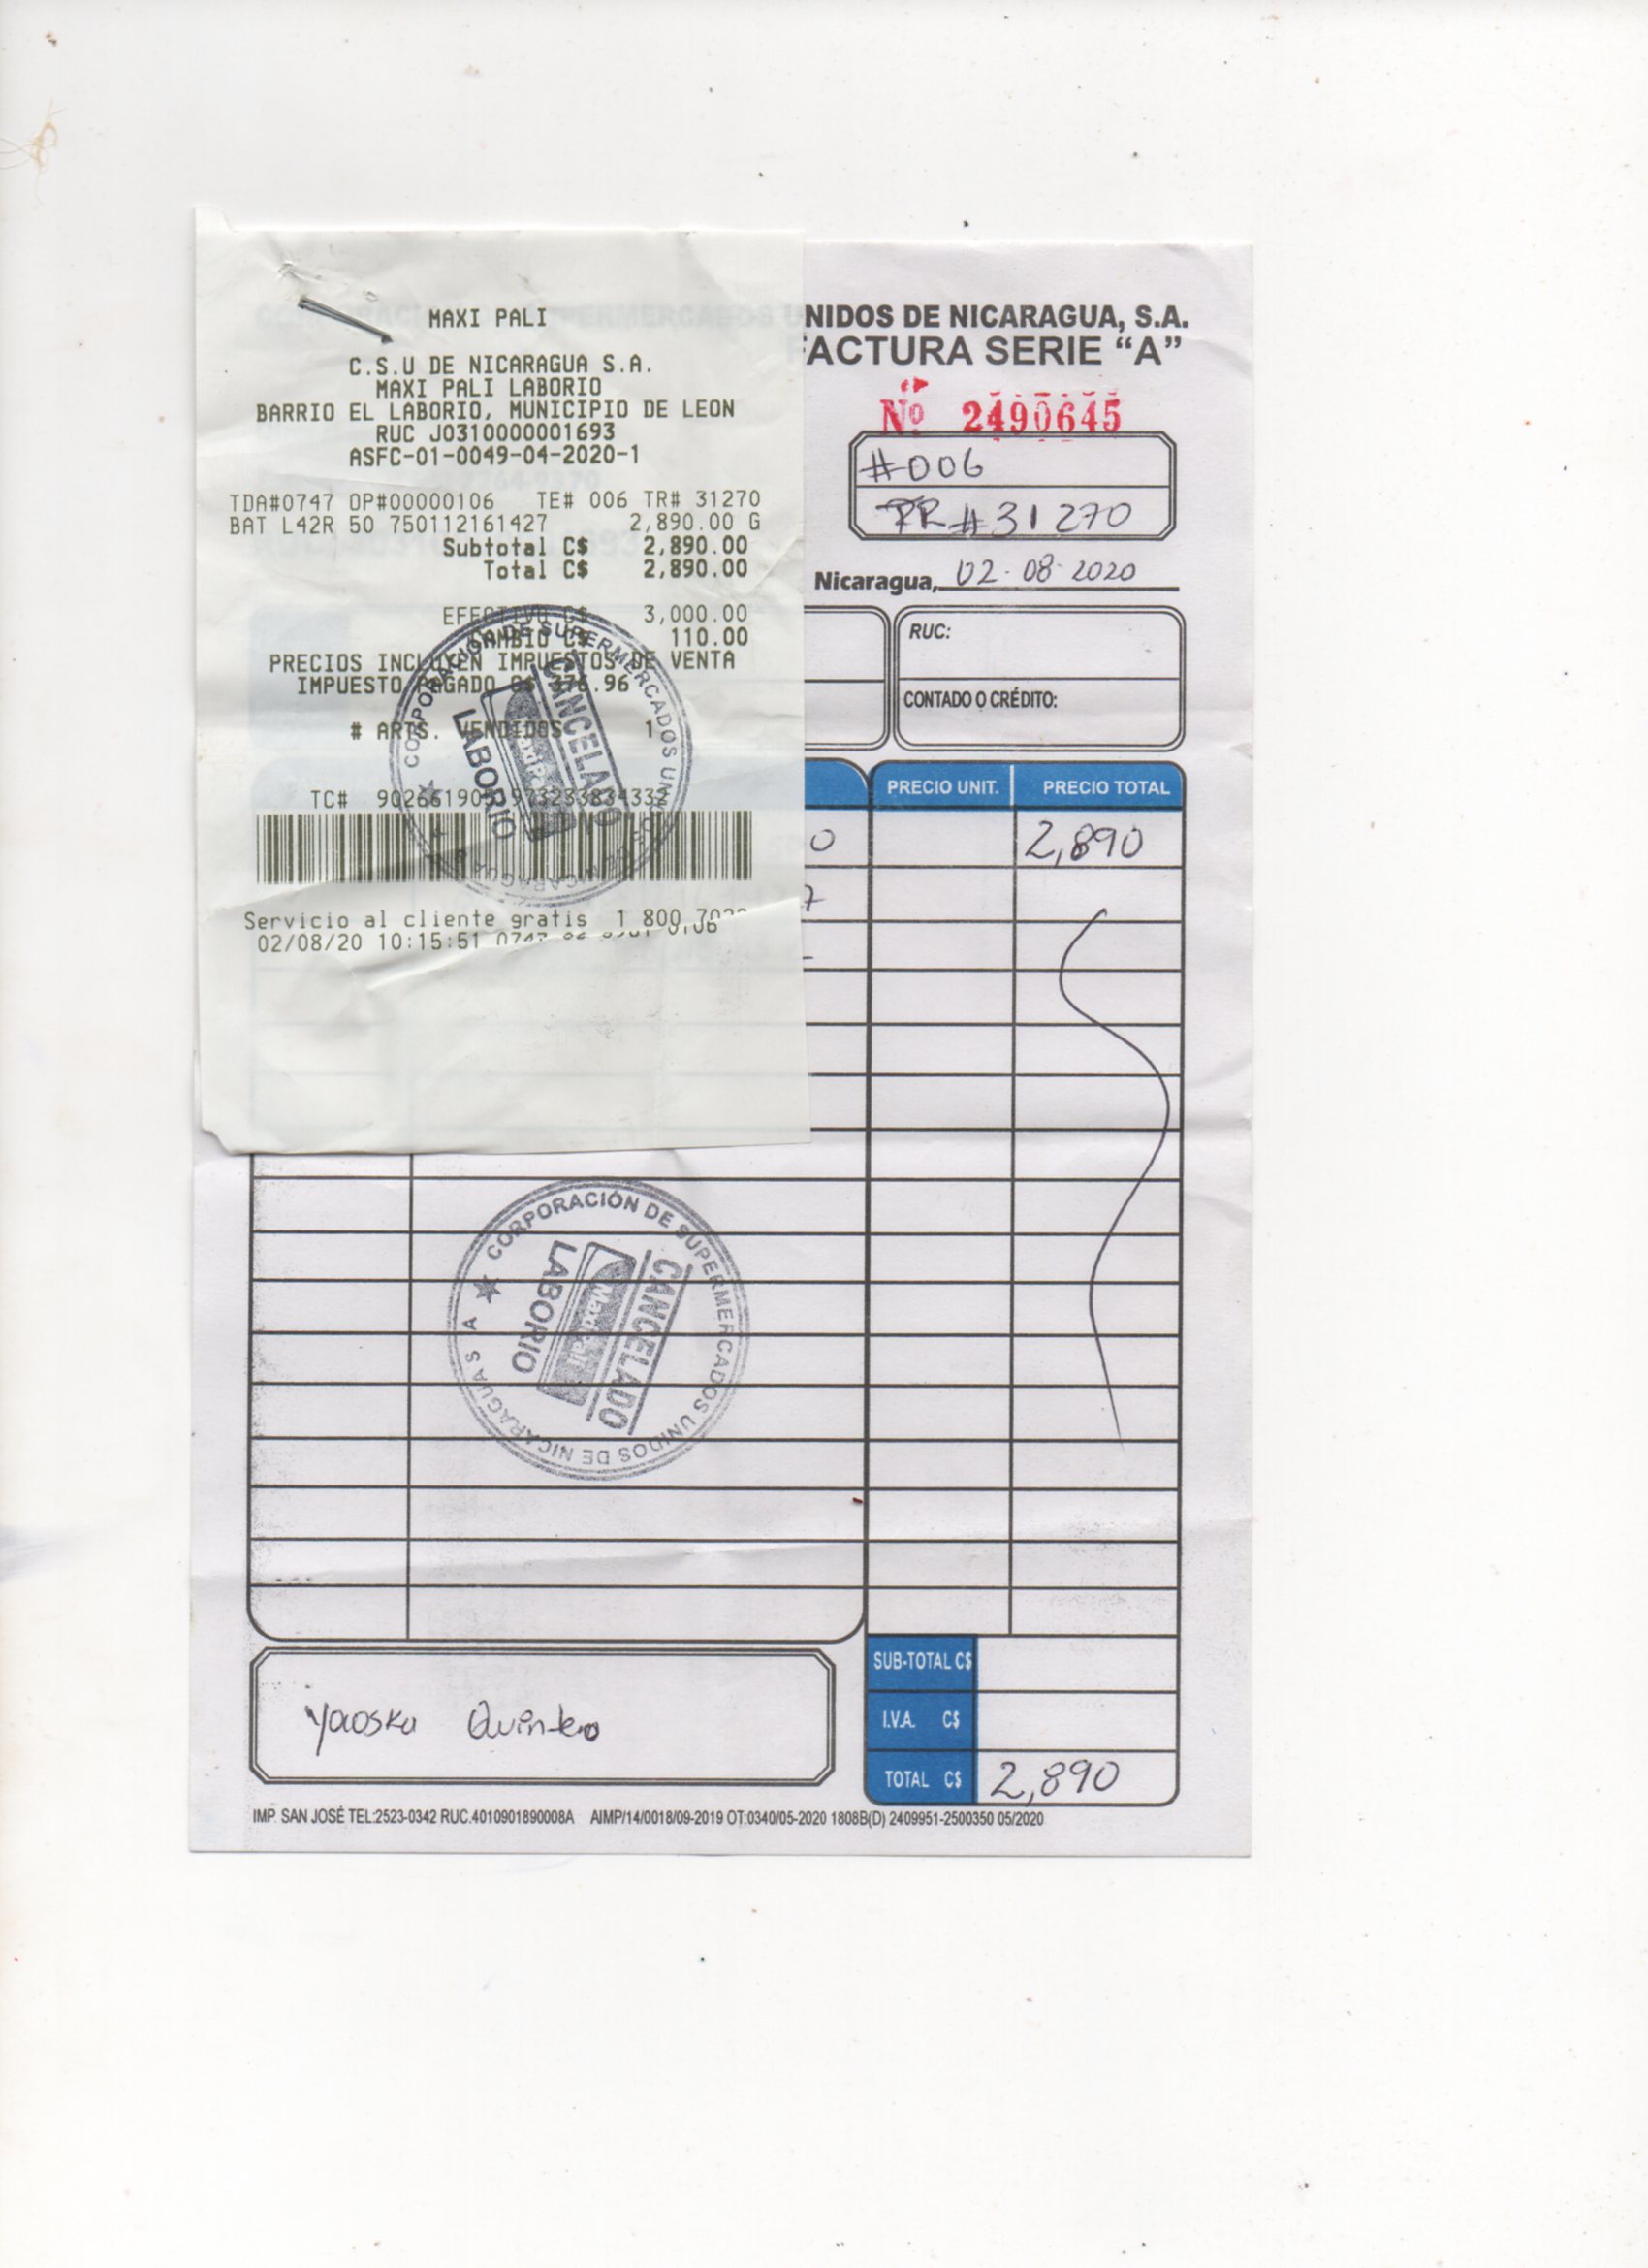 MAXI PALI
C.S.U DE NICARAGUA S.A.
MAXI PALI LABORIO
BARRIO EL LABORIO, MUNICIPIO DE LEON
RUC J0310000001693
ASFC-01-0049-04-2020-1
TDA#0747 OP#00000106 TE# 006 TR# 31270
BAT L42R 50 750112161427 2,890.00 G
Subtotal C$ 2,890.00
Total C$ 2,890.00
EFECTIVO C$ 3,000.00
CAMBIO C$ 110.00
PRECIOS INCLUYEN IMPUESTOS DE VENTA
IMPUESTO PAGADO C$ 376.96
# ARTS. VENDIDOS 1
TC#
Servicio al cliente gratis 1 800
02/08/20 10:15:51
CORPORACIÓN DE SUPERMERCADOS UNIDOS DE NICARAGUA
CANCELADO
LABORIO
NIDOS DE NICARAGUA, S.A.
FACTURA SERIE “A”
Nº 2490645
#006
TR#31270
Nicaragua, 02-08-2020
RUC:
CONTADO O CRÉDITO:
PRECIO UNIT. PRECIO TOTAL
0 2,890
7
CORPORACIÓN DE SUPERMERCADOS UNIDOS DE NICARAGUA S A
CANCELADO
MaxiPali
LABORIO
SUB-TOTAL C$
I.V.A. C$
TOTAL C$ 2,890
Yaoska Quintero
IMP. SAN JOSÉ TEL:2523-0342 RUC.4010901890008A AIMP/14/0018/09-2019 OT:0340/05-2020 1808B(D) 2409951-2500350 05/2020